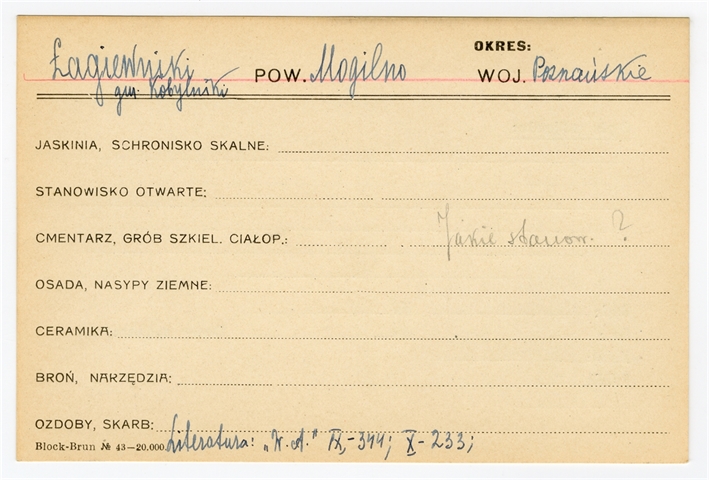 OKRES:
Łagiewniki POW. Mogilno WOJ. Poznańskie
gm. Kobylniki
JASKINIA, SCHRONISKO SKALNE:
STANOWISKO OTWARTE:
CMENTARZ, GRÓB SZKIEL. CIAŁOP.: Jakie stanow. ?
OSADA, NASYPY ZIEMNE:
CERAMIKA:
BROŃ, NARZĘDZIA:
OZDOBY, SKARB: Literatura: „W.A." IX,-344; X-233;
Block-Brun № 43—20.000.